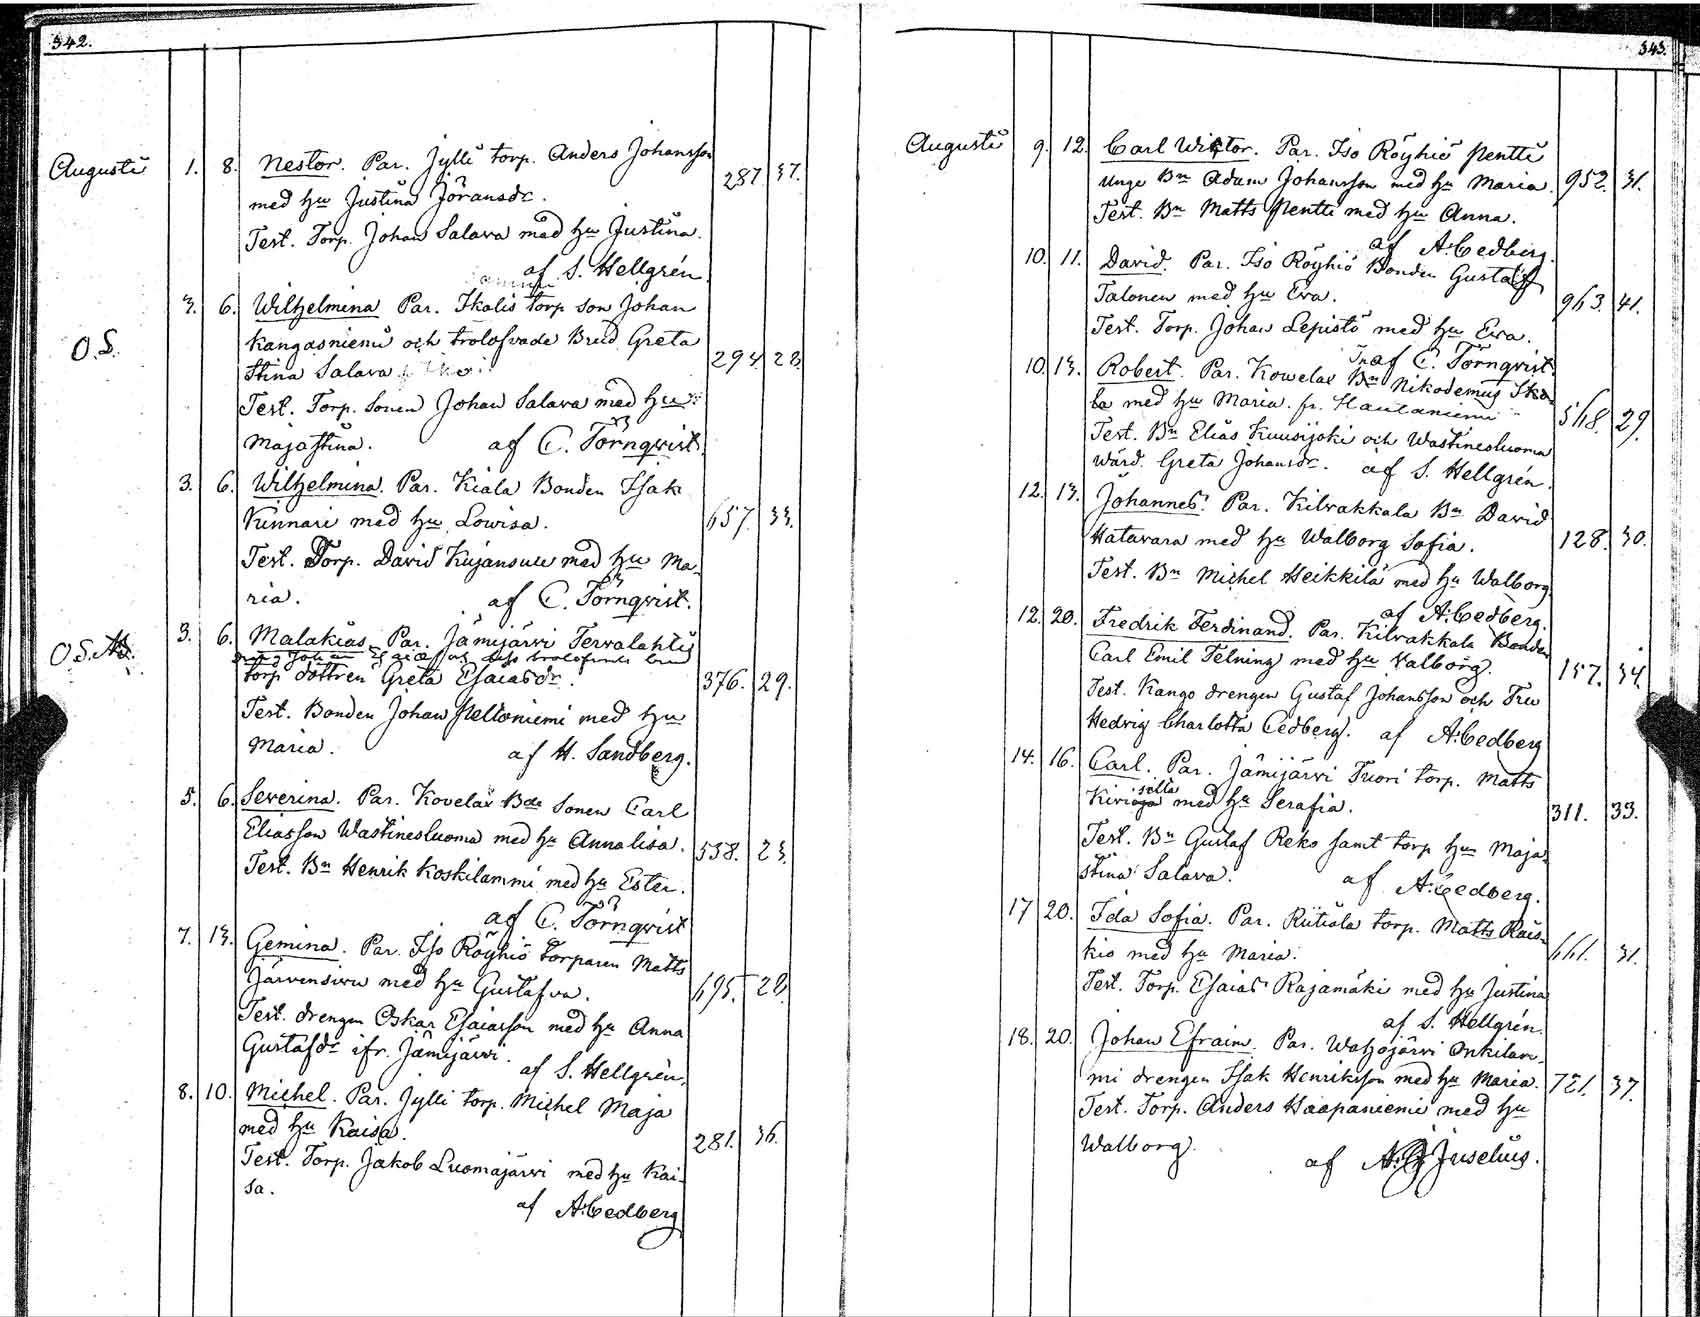 342.
Augusti 1. 8. Nestor. Par. Jylli torp. Anders Johansson 287. 37.
med hu Justina Jöransdr.
Test. Torp. Johan Salava med hu Justina.
af S. Hellgrén
O.S. 3. 6. Wilhelmina Par. Ikalis torp son Johan
Kangasniemi och trolofvade Brud Greta 294. 28.
Stina Salava
Test. Torp. sonen Johan Salava med hu
Majastina. af C. Törnqvist.
3. 6. Wilhelmina. Par. Kiala Bonden Isak
Kinnari med hu Lowisa. 657. 33.
Test. Torp. David Kujansuu med hu Ma-
ria. af C. Törnqvist.
O.S. 3. 6. Malakias Par. Jämijärvi Terwalahti
trolofvade
torp dottren Greta Esaiasdr. 376. 29.
Test. Bonden Johan Peltoniemi med hu
Maria. af H. Sandberg.
5. 6. Severina. Par. Kovelax Bde Sonen Carl
Eliasson Wastinesluoma med hu Annalisa. 538. 23.
Test. Bn Henrik Koskilammi med hu Ester.
af C. Törnqvist
7. 13. Gemina. Par. Iso Röyhiö Torparen Matts
Järvensivu med hu Gustafva. 695. 28.
Test. drengen Oskar Esaiasson med hu Anna
Gustafsdr ifr. Jämijärvi.
af S. Hellgrén.
8. 10. Michel. Par. Jylli torp. Michel Maja
med hu Kaisa. 281. 36.
Test. Torp. Jakob Luomajärvi med hu Kai-
sa.
af A. Cedberg
343.
Augusti 9. 12. Carl Wiktor. Par. Iso Röyhiö Pentti
unge Bn Adam Johansson med hu Maria. 952. 31.
Test. Bn Matts Pentti med hu Anna.
af A. Cedberg.
10. 11. David. Par. Iso Röyhiö Bonden Gustaf
Talonen med hu Eva. 963. 41.
Test. Torp. Johan Lepistö med hu Eva.
af C. Törnqvist
10. 13. Robert. Par. Kowelax Bn Nikodemus Iko-
la med hu Maria. fr. Hautaniemi 568. 29.
Test. Bn Elias Kuusijoki och Wastinesluoma
wärd. Greta Johansdr. af S. Hellgrén.
12. 13. Johannes. Par. Kilvakkala Bn David
Hatavara med hu Walborg Sofia. 128. 30.
Test. Bn Michel Heikkilä med hu Walborg
af A. Cedberg.
12. 20. Fredrik Ferdinand. Par. Kilvakkala Bonden
Carl Emil Telning med hu Valborg. 157. 34.
Test. Kango drengen Gustaf Johansson och Fru
Hedvig Charlotta Cedberg. af A. Cedberg
14. 16. Carl. Par. Jämijärvi Tuori torp. Matts
Kiviselta med hu Serafia. 311. 33.
Test. Bn Gustaf Reko samt torp hu Maja
Stina Salava. af A. Cedberg.
17 20. Ida Sofia. Par. Riitiala torp. Matts Räis-
kiö med hu Maria. 661. 31.
Test. Torp. Esaias Rajamäki med hu Justina
af S. Hellgrén.
18. 20. Johan Efraim. Par. Watzojärvi Onkilam-
mi drengen Isak Henriksson med hu Maria. 721. 37.
Test. Torp. Anders Haapaniemi med hu
Walborg.
af A. Juselius.